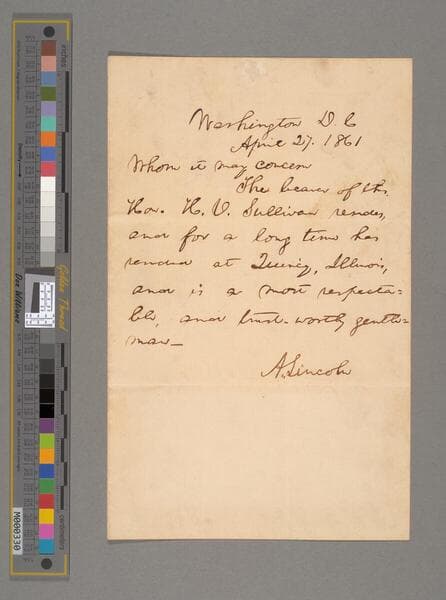 Washington D C
April 27. 1861
Whom it may concern
The bearer of this,
Hon. H. V. Sullivan resides,
and for a long time has
resided at Quincy, Illinois,
and is a most respecta=
ble, and trust-worthy gentle=
man—
A. Lincoln
inches
Golden Thread
Don Williams
centimeters
M000330